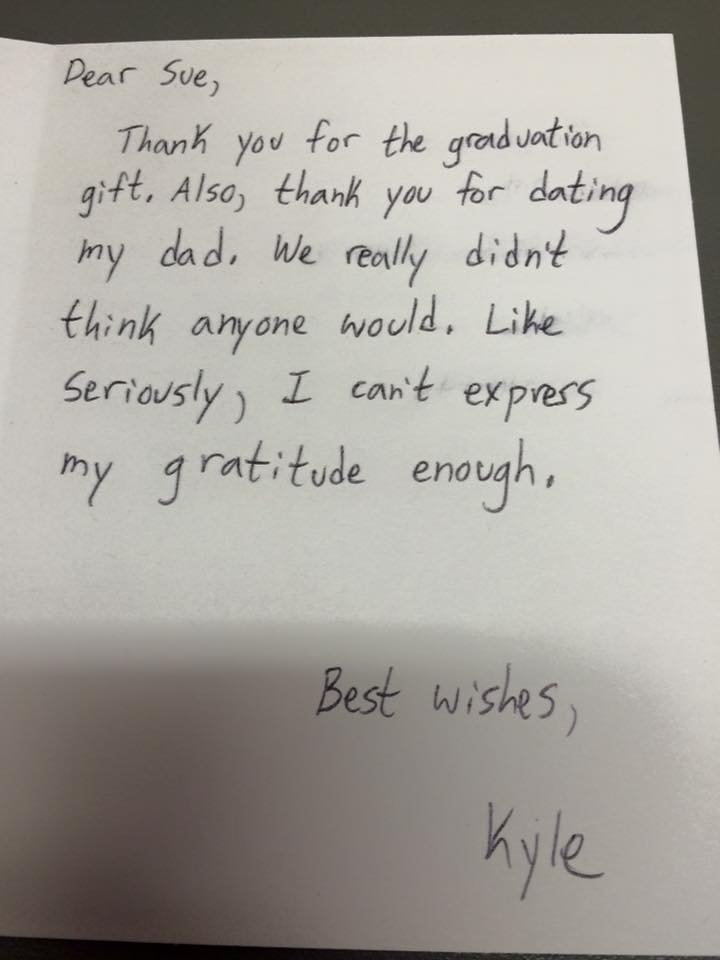 Dear Sue,
Thank you for the graduation
gift. Also, thank you for dating
my dad. We really didn't
think anyone would. Like
Seriously, I can't express
my gratitude enough.
Best wishes,
Kyle